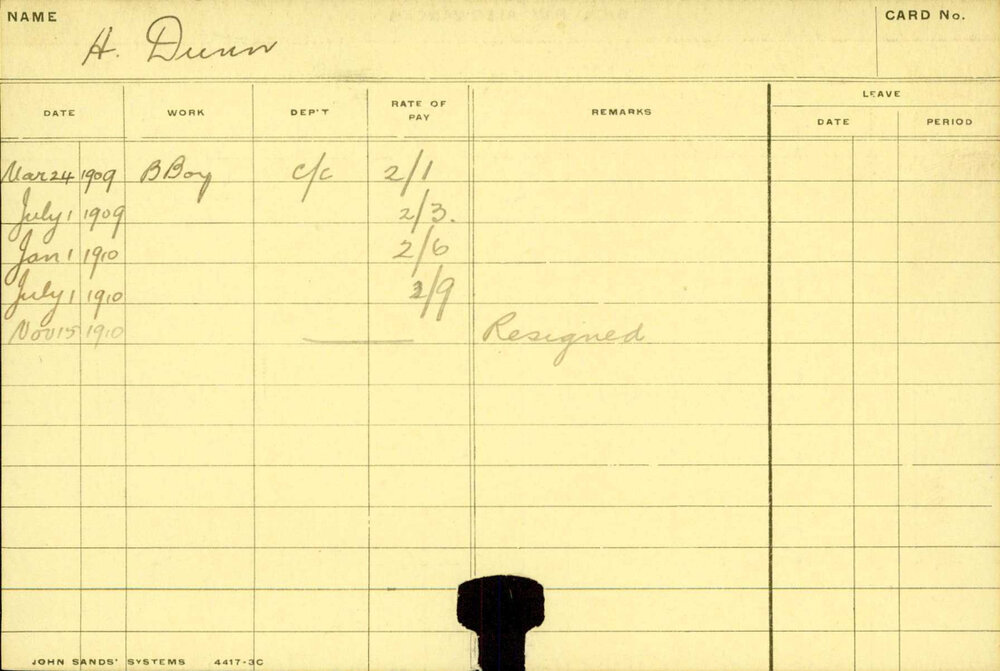 NAME
CARD No.
H. Dunn
LEAVE
DATE WORK DEP'T RATE OF PAY REMARKS DATE PERIOD
Mar 24 1909 BBoy C/C 2/1
July 1 1909 2/3.
Jan 1 1910 2/6
July 1 1910 2/9
Nov 15 1910 Resigned
JOHN SANDS' SYSTEMS 4417-3C